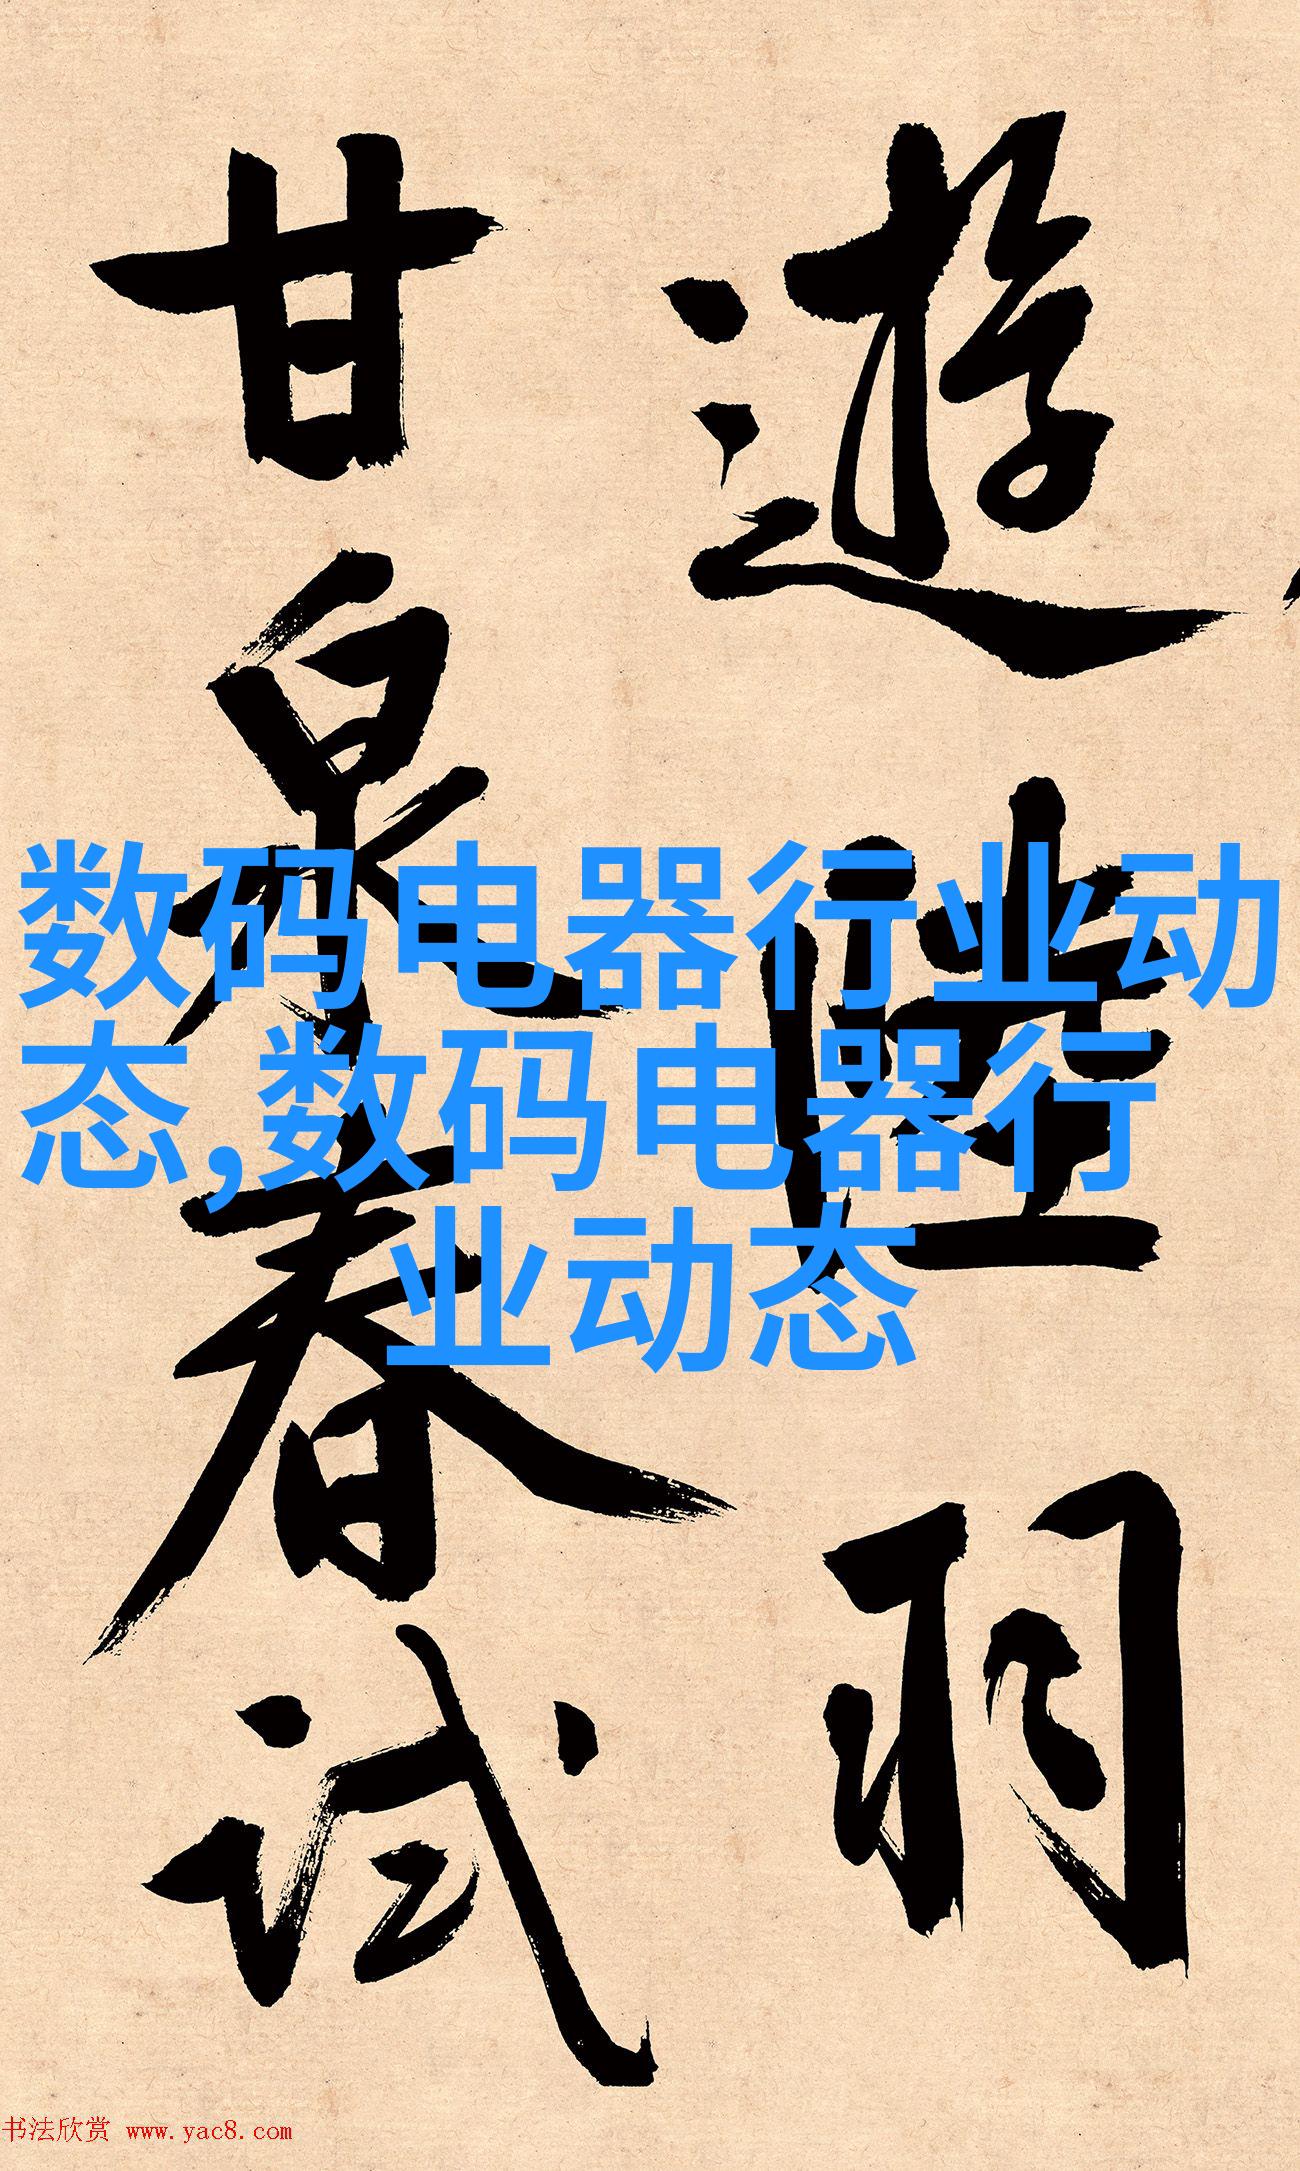 遊陸羽
甘泉春试
数码电器行业动
态,数码电器行
业动态
书法欣赏 www.yac8.com